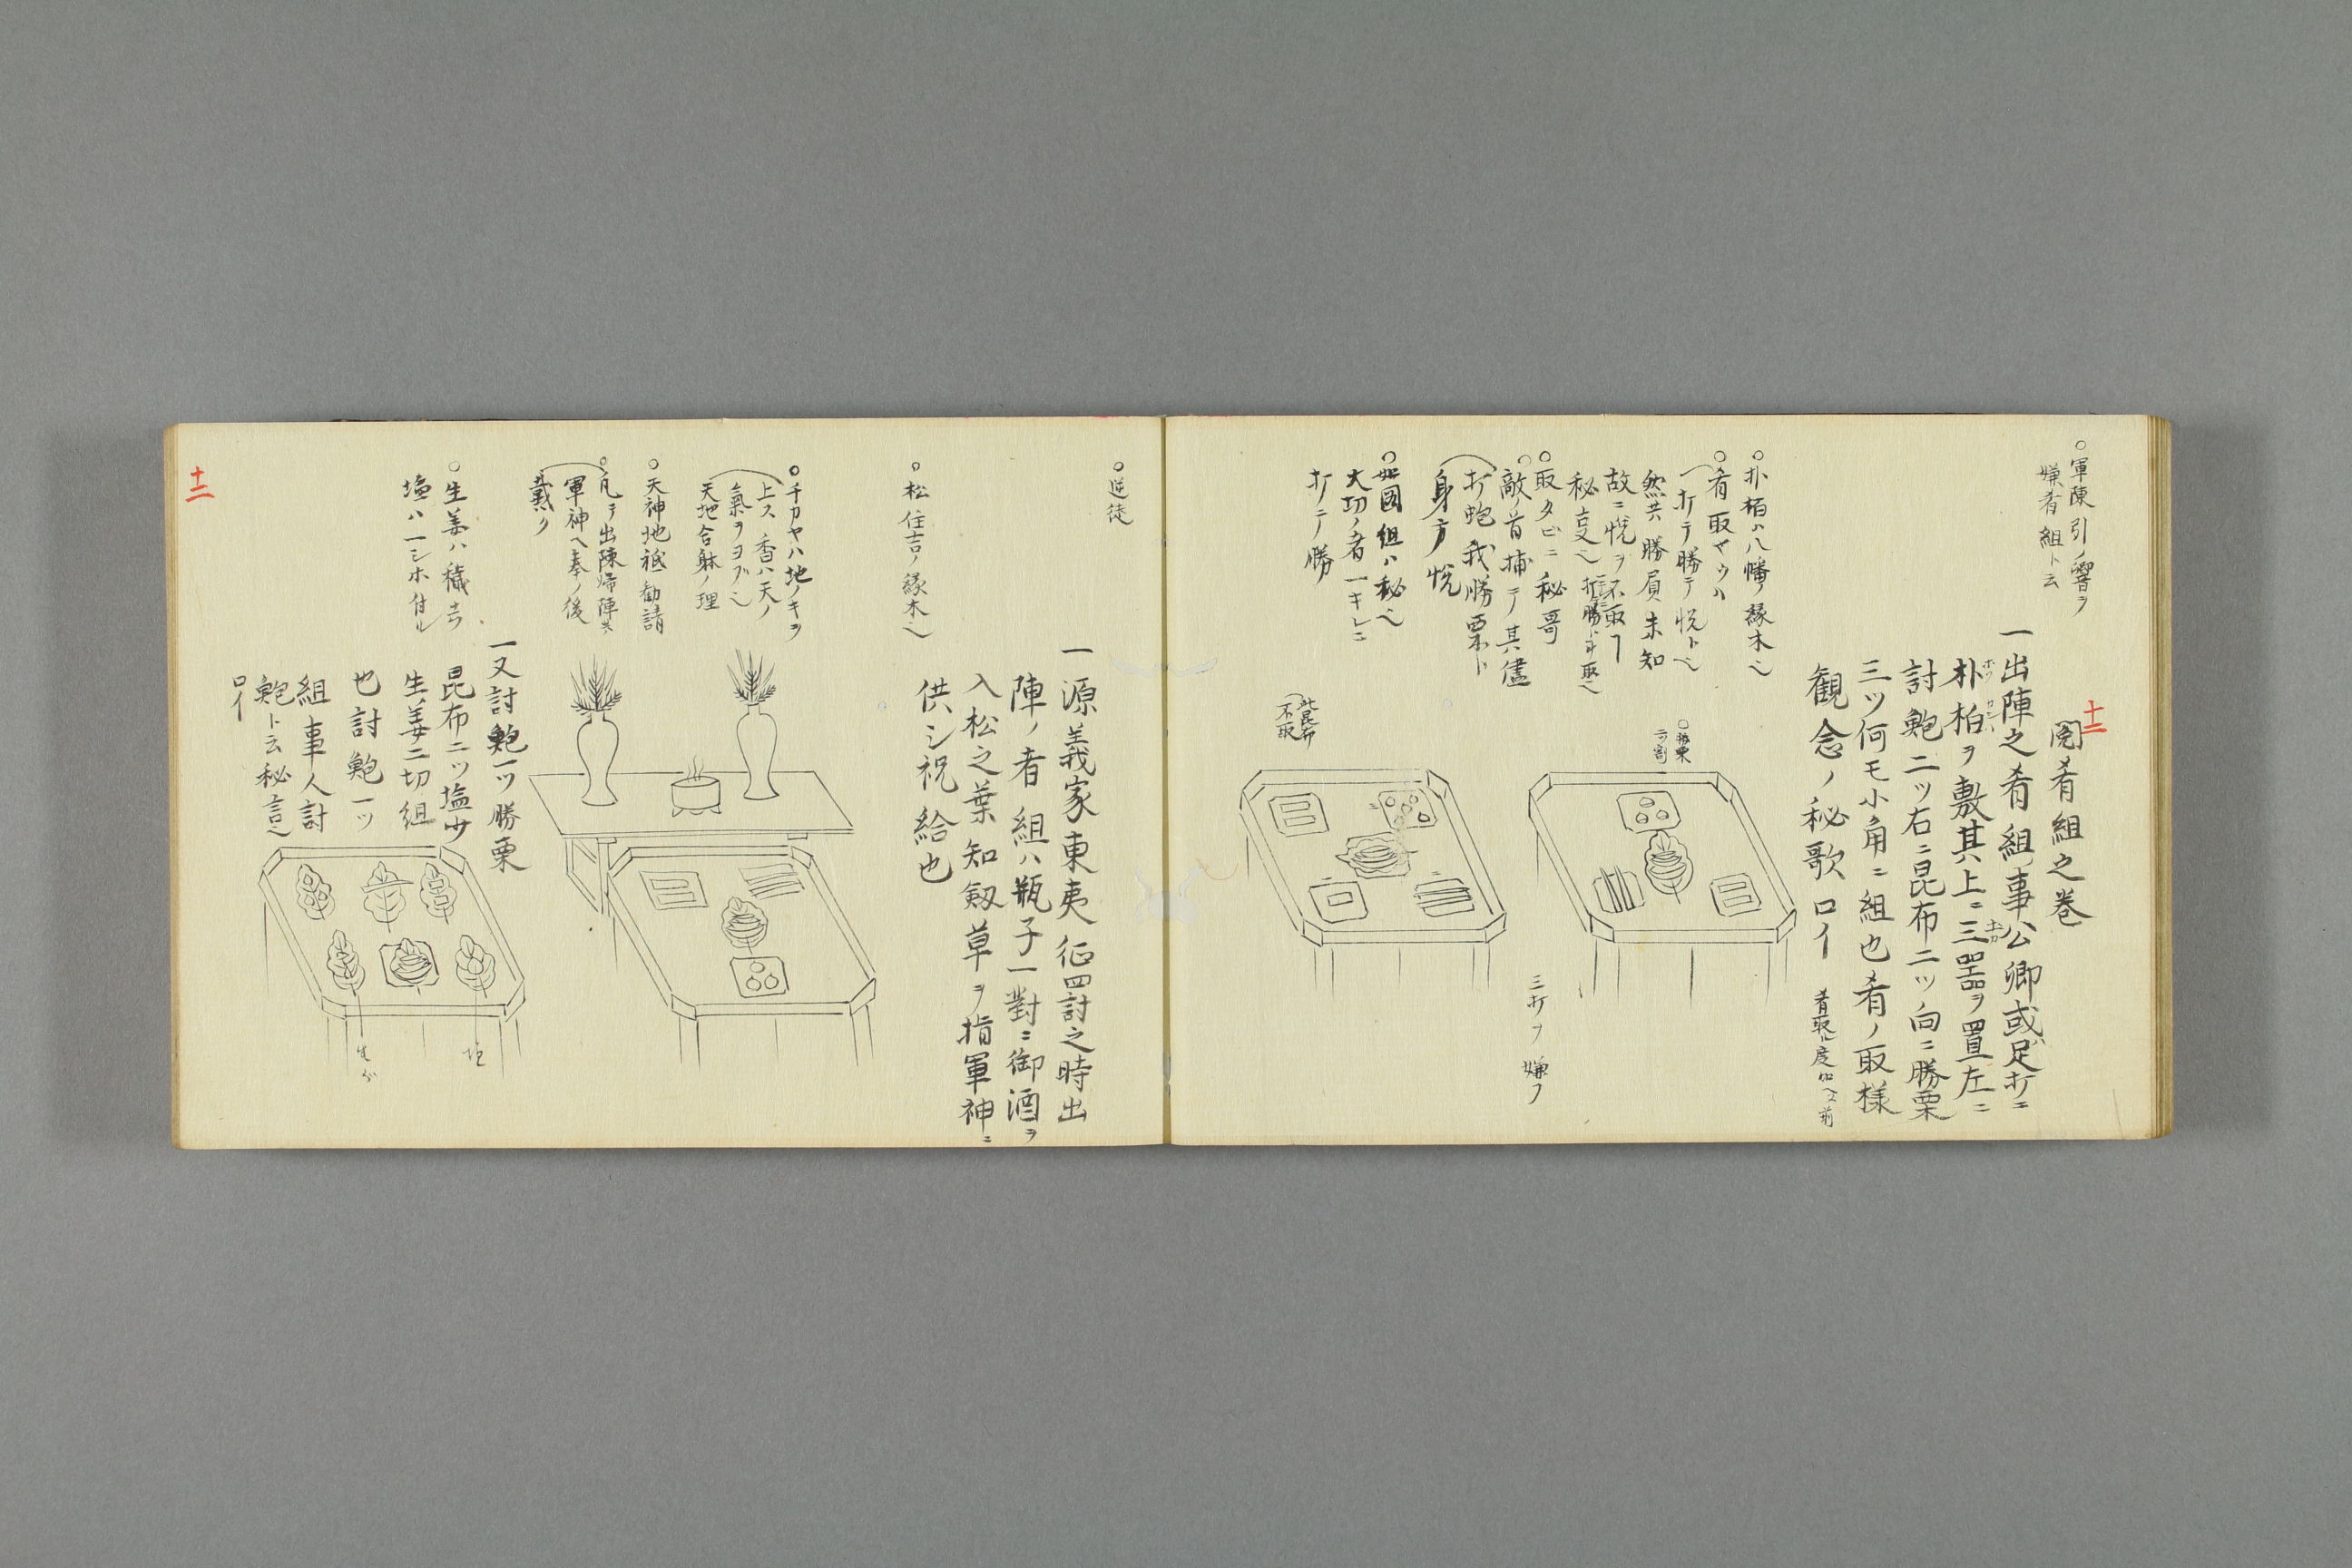 十二
○軍陳引ノ響ヲ
嫌肴組ト云
肴組之巻
一出陣之肴組事公卿或足打ニ
朴柏ヲ敷其上ニ三噐ヲ置左ニ
討鮑二ツ右ニ昆布二ツ向ニ勝栗
三ツ何モ小角ニ組也肴ノ取様
観念ノ秘歌ロイ
○朴柏ハ八幡ノ縁木也
○肴取ヤウハ
打テ勝テ悦ト也
然共勝負未知
故ニ悦ヲ不取
○取タビニ秘哥
○敵ノ首捕テ其儘
打鮑我勝栗ト
身方悦
組ハ秘也
大切ノ肴一キレニ
打テ勝
二ツ割
三打ヲ嫌フ
此昆布
不取
○逆徒
一源義家東夷征罰討之時出
陣ノ者組ハ瓶子一對ニ御酒ヲ
入松之葉知釼草ヲ指軍神ニ
供シ祝給也
○松住吉ノ縁木也
○千カヤハ地ノキヲ
上ス香ハ天ノ
氣ヲヨブ也
天地合躰ノ理
○天神地祗勧請
○凡テ出陳帰陣共
軍神ヘ奉ノ後
戴ク
一又討鮑一ツ勝栗
昆布二ツ塩少
生姜二切組
也討鮑一ツ
組事人討
鮑ト云秘言也
ロイ
○生姜ハ穢去
塩ハ一シホ付ル
塩
十二